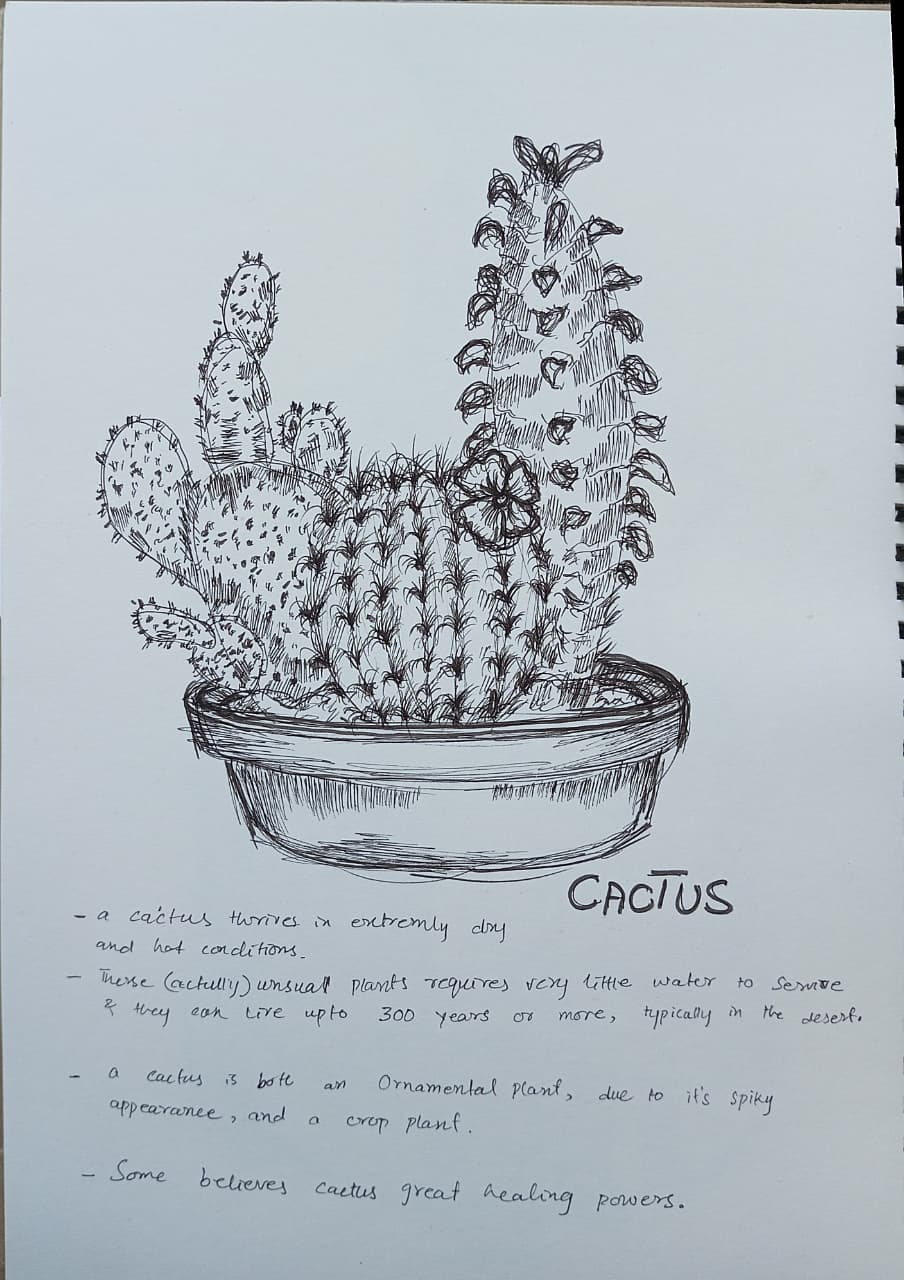 CACTUS
- a cactus thrives in extremly dry
and hot conditions.
- These (actully) unsual plants requires very little water to servive
& they can live upto 300 years or more, typically in the desert.
- a cactus is both an Ornamental plant, due to it's spiky
appearance, and a crop plant.
- Some believes cactus great healing powers.